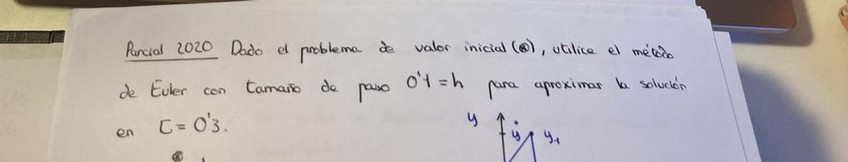 Parcial 2020 Dado el problema de valor inicial (⊛), utilice el método
de Euler con tamaño de paso 0'1=h para aproximar la solución
en t = 0'3.
y ẏ y₁